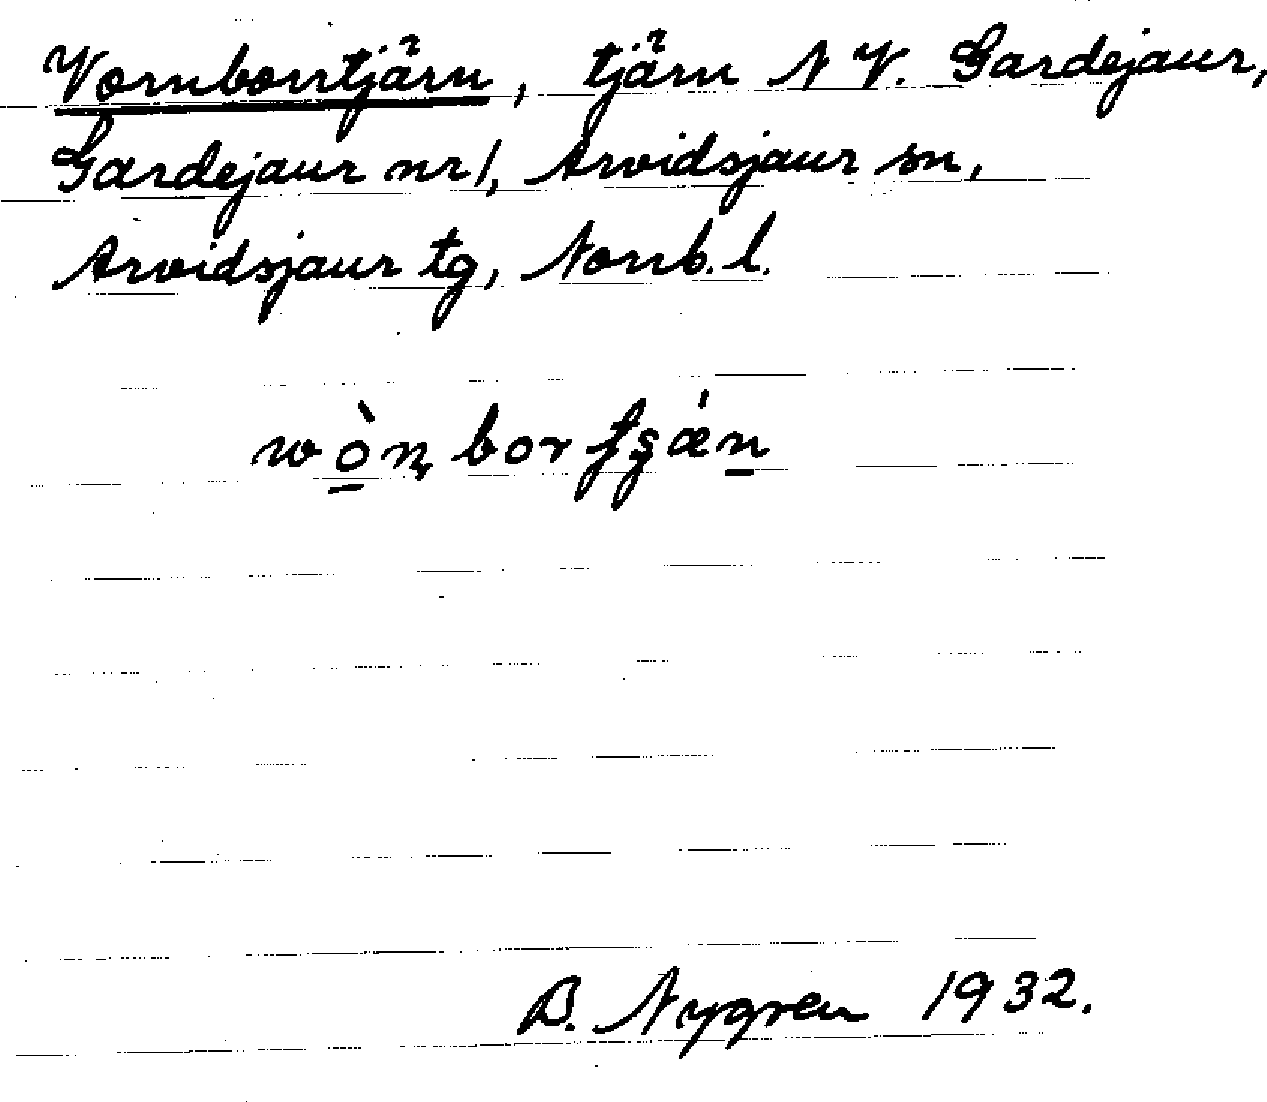 Vornborrtjärn, tjärn N V. Gardejaur,
Gardejaur nr 1, Arvidsjaur sn,
Arvidsjaur tg, Norrb. l.
B. Nygren 1932.